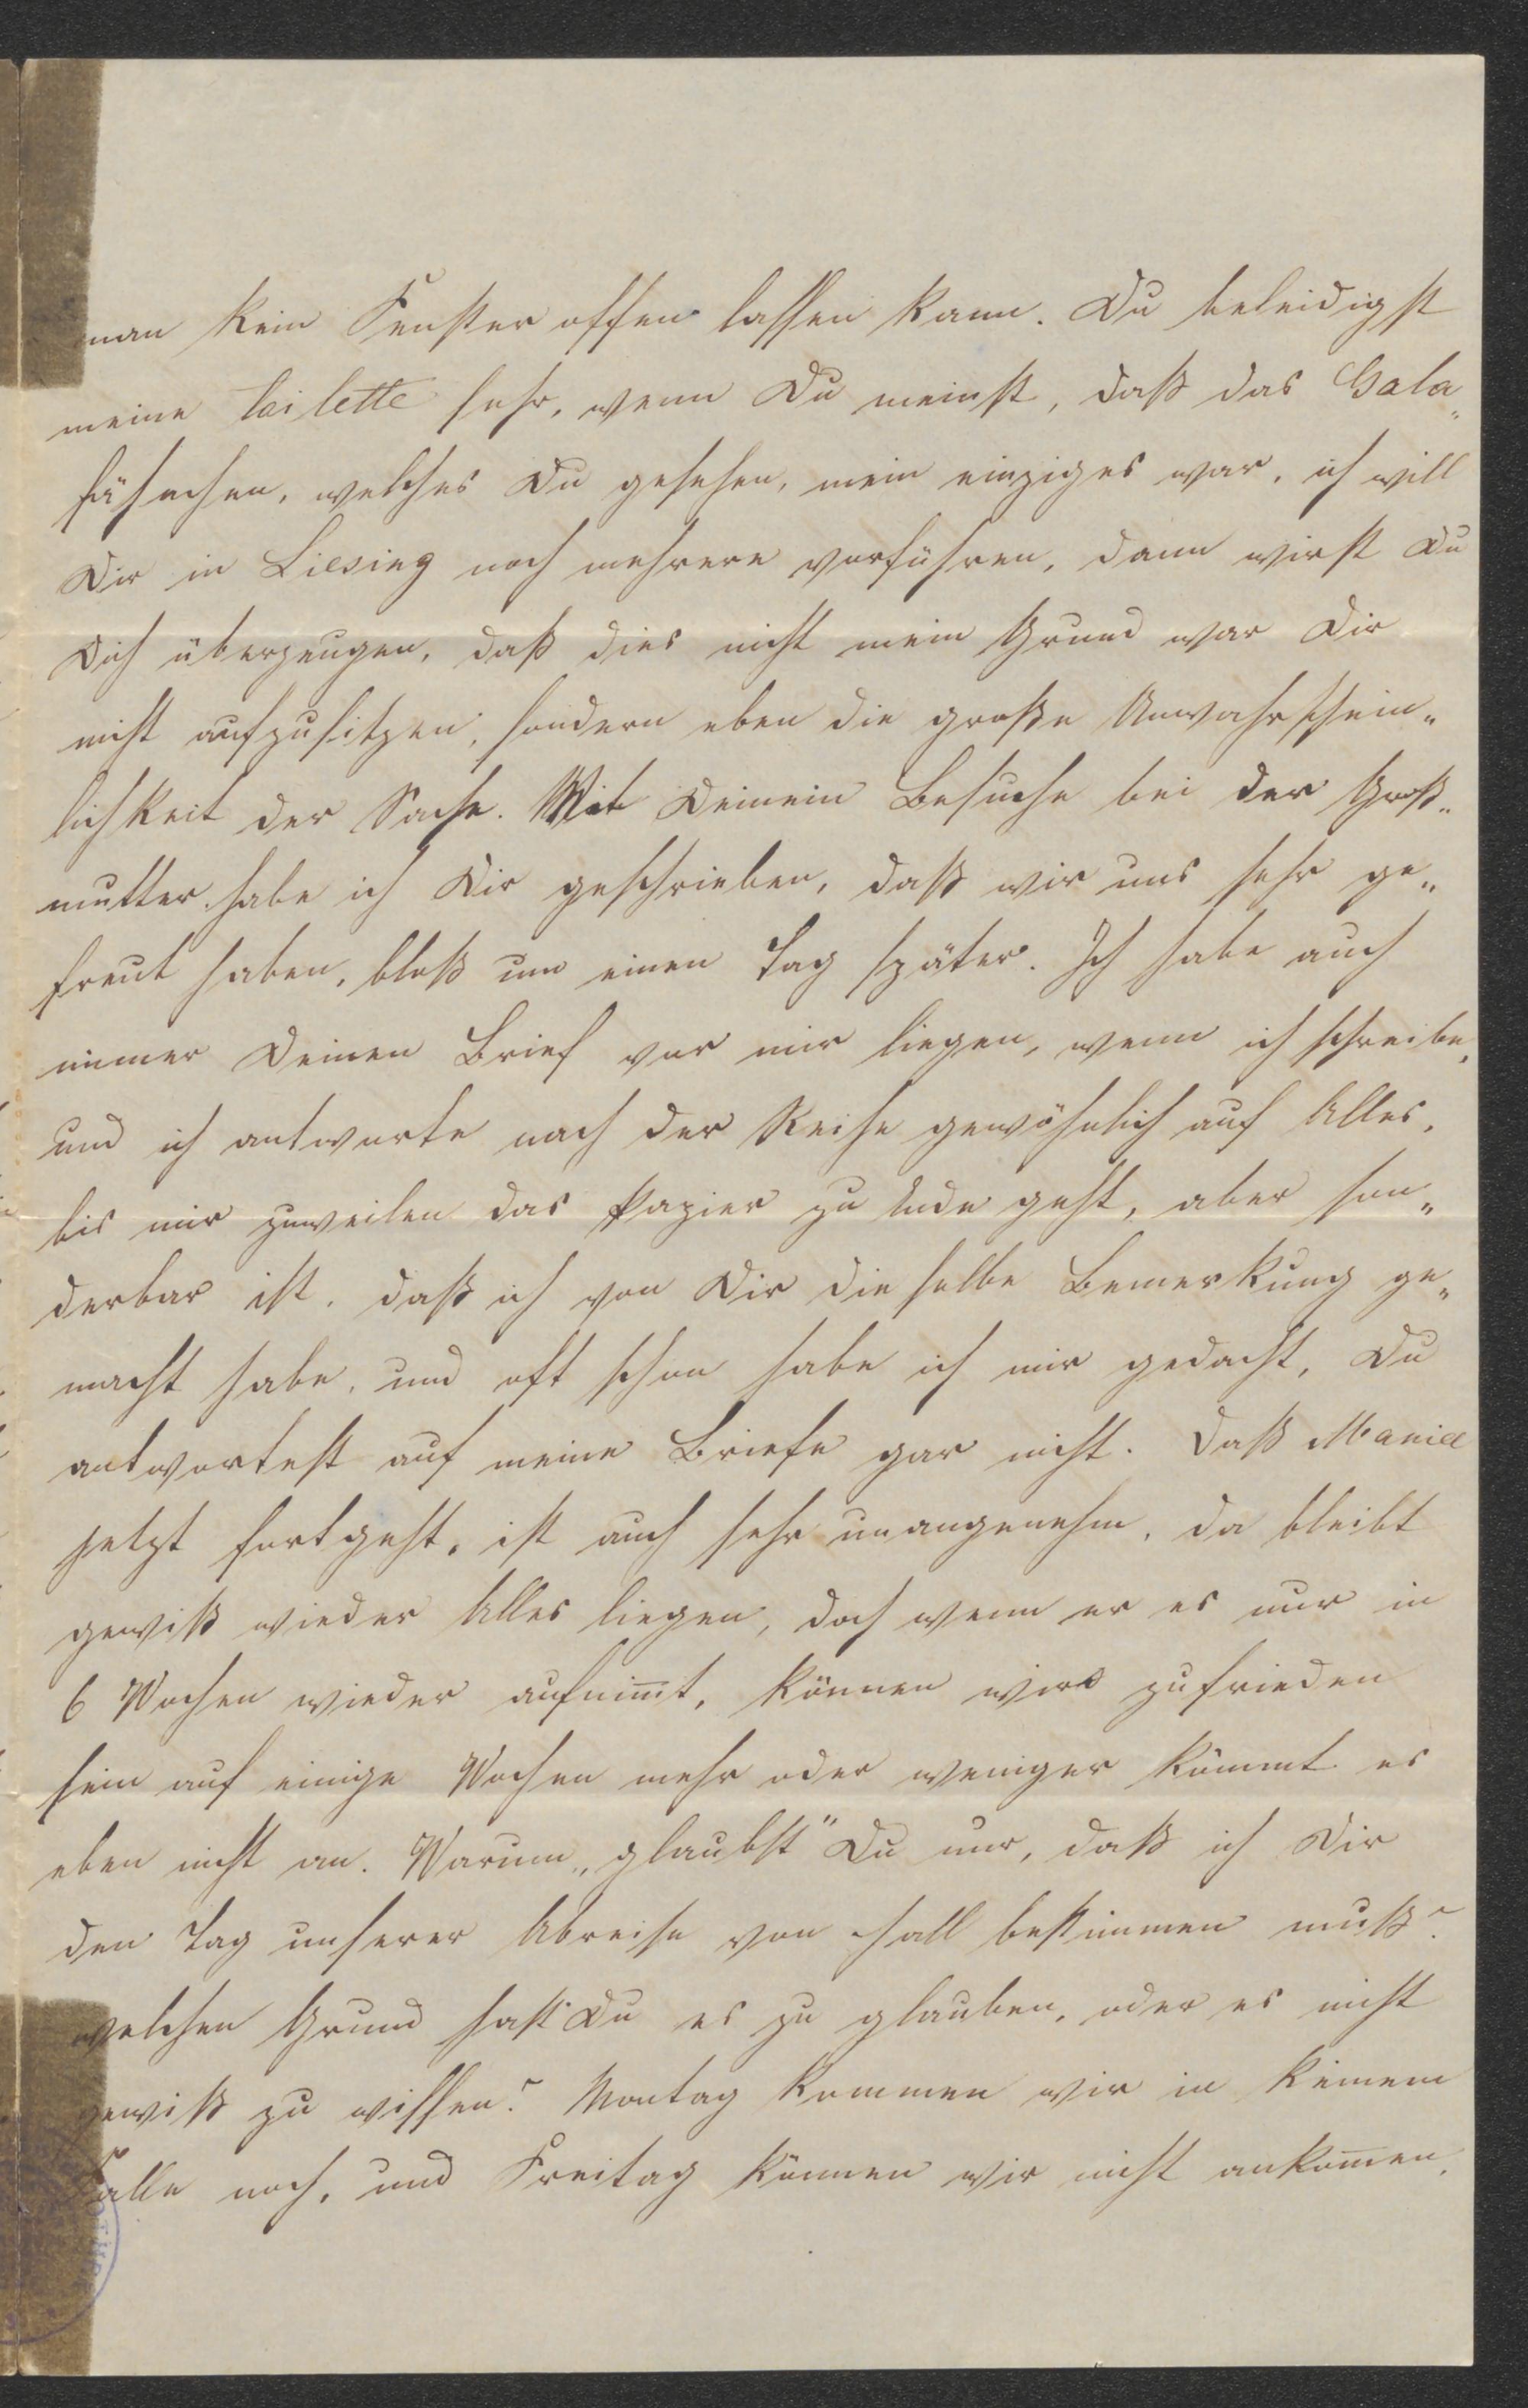 man kein Fenster offen lassen kann. Du beleidigst
meine toilette sehr, wenn Du meinst, daß das Gala„
fähnchen, welches Du gesehen, mein einziges war, ich will
Dir in Liesing noch mehrere vorführen, dann wirst Du
Dich überzeugen, daß dies nicht mein Grund war Dir
nicht aufzusitzen, sondern eben die große Unwahrschein„
lichkeit der Sache. Mit Deinem Besuche bei der Groß„
mutter habe ich Dir geschrieben, daß wir uns sehr ge„
freut haben, bloß um einen Tag später. Ich habe auch
immer Deinen Brief vor mir liegen, wenn ich schreibe,
und ich antworte nach der Reihe gewöhnlich auf Alles,
bis mir zuweilen das Papier zu Ende geht, aber son„
derbar ist, daß ich von Dir dieselbe Bemerkung ge„
macht habe, und oft schon habe ich mir gedacht, Du
antwortest auf meine Briefe gar nicht. Daß
jetzt fortgeht, ist auch sehr unangenehm, da bleibt
gewiß wieder Alles liegen, doch wenn er es nur in
6 Wochen wieder aufnim̄t, können wir zufrieden
sein auf einige Wochen mehr oder weniger kömmt es
eben nicht an. Warum „glaubst" Du nur, daß ich Dir
den Tag unserer Abreise von Hall bestimmen muß?
welchen Grund hast Du es zu glauben, oder es nicht
gewiß zu wissen? Montag kommen wir in keinem
Falle noch, und Freitag können wir nicht ankom̄en,